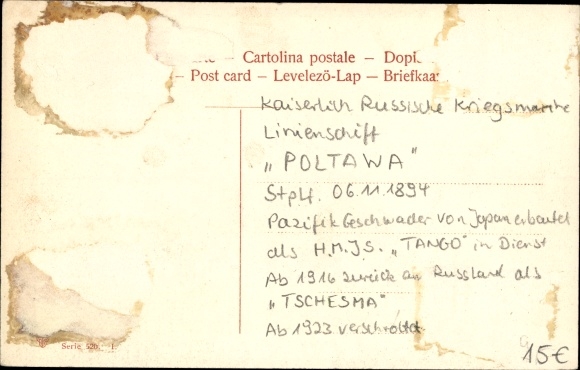 – Cartolina postale –
– Post card – Levelező-Lap –
Kaiserlich Russische Kriegsmarine
Linienschiff
„POLTAWA"
Stplf. 06.11.1894
Pazifik Geschwader von Japan erbeutet
als H.M.J.S. „TANGO" in Dienst
Ab 1916 zurück an Russland als
„TSCHESMA"
Ab 1923 verschrottet
15€
Serie